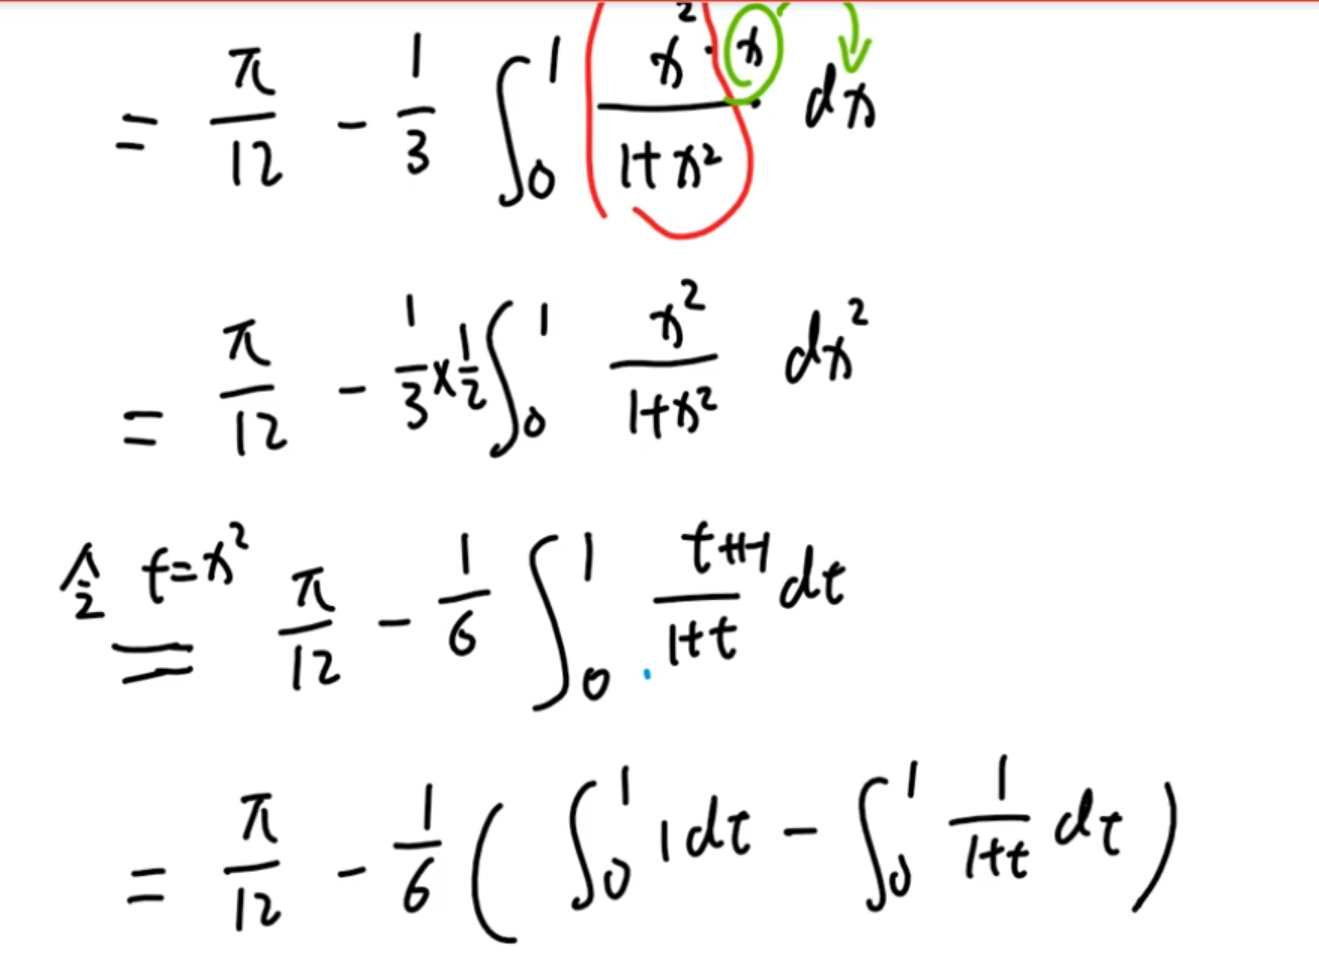 = π/12 - 1/3 ∫₀¹ x²·x/(1+x²) · dx
= π/12 - 1/3 × 1/2 ∫₀¹ x²/(1+x²) dx²
令 t=x² = π/12 - 1/6 ∫₀¹ (t+1-1)/(1+t) dt
= π/12 - 1/6 ( ∫₀¹ 1dt - ∫₀¹ 1/(1+t) dt )